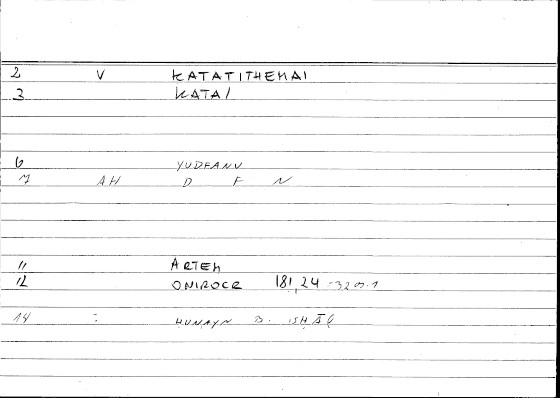 2 V KATATITHEMAI
3 KATA/
6 YUDFANU
7 AH D F N
11 ARTEM
12 ONIROCR 181,24 = 320.1
14 : ḤUNAYN B. ISḤĀQ